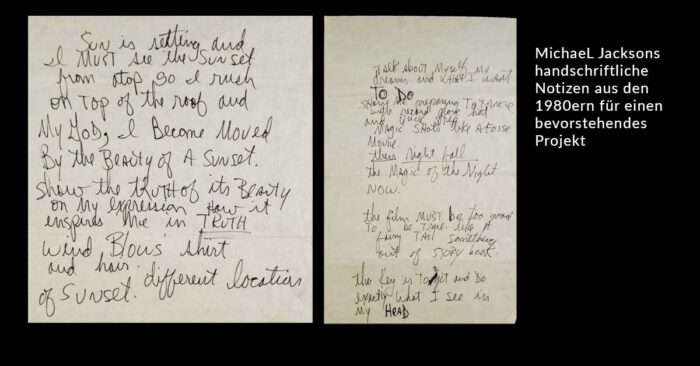 Sun is setting and
I MUST see the Sunset
from atop, So I rush
on Top of the roof and
My God, I Become Moved
By the Beauty of A Sunset.
Show the truth of its Beauty
on My expression How it
enspires Me in TRUTH
Wind Blows shirt
and hair. different location
of Sunset.
talk about Myself my
dreams and What I want
TO DO
show me preparing To
Magic Shoes like A Fosse
Movie
then Night fall
the Magic of the Night
NOW.
the film MUST be Too good
To be True like A
fairy Tail Something
out of story book.
the Key is To get and Do
exactly What I see in
my HEAD
MichaeL Jacksons
handschriftliche
Notizen aus den
1980ern für einen
bevorstehendes
Projekt